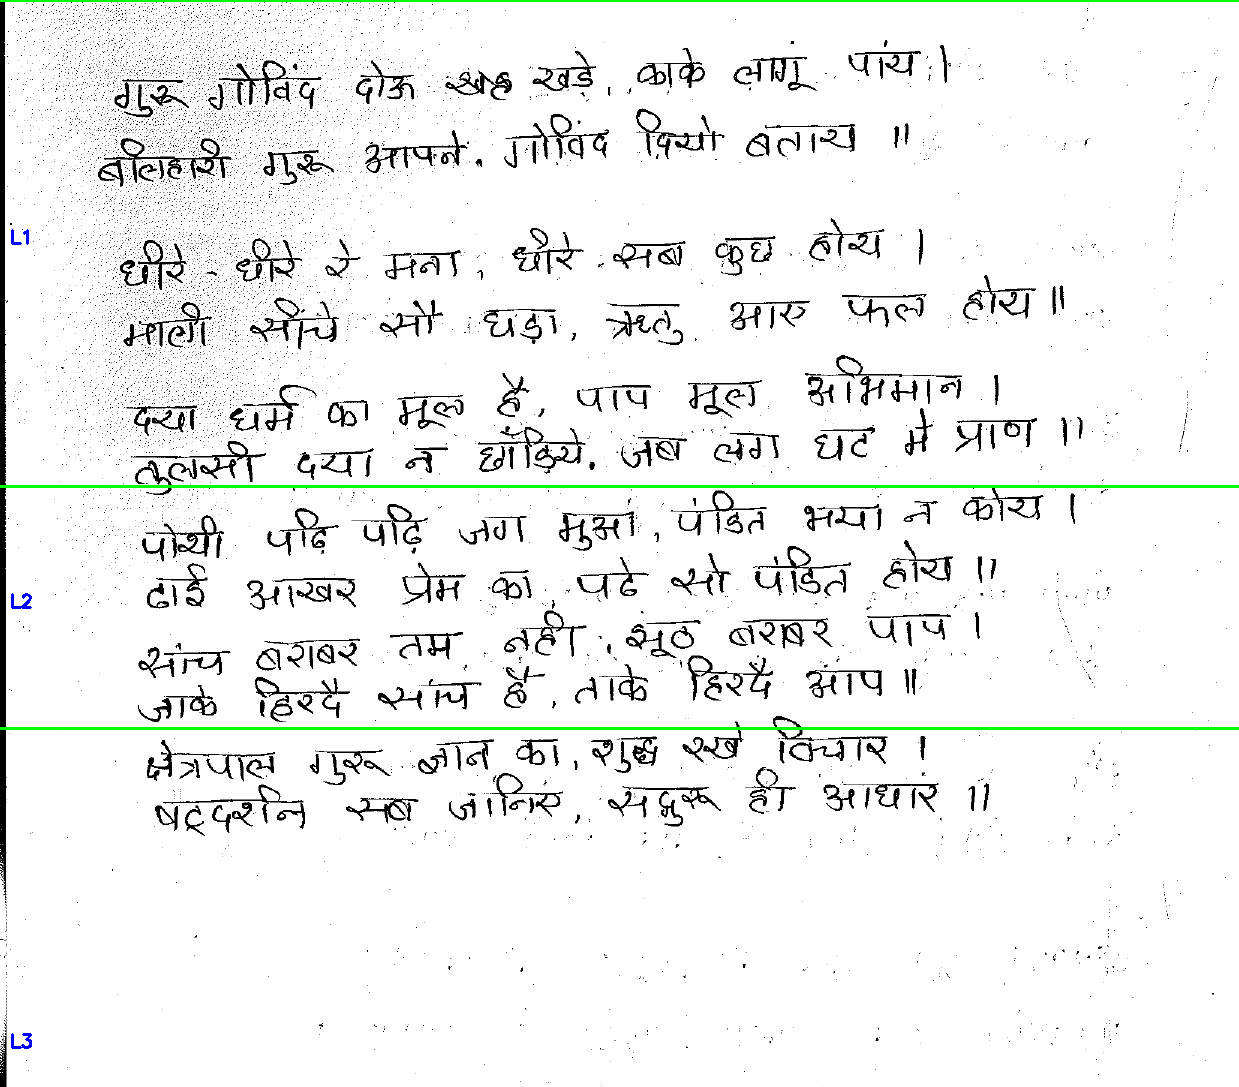 गुरू गोविंद दोऊ खड़े, काके लागूं पांय।
बलिहारी गुरू आपने, गोविंद दियो बताय॥
L1
धीरे - धीरे रे मना, धीरे सब कुछ होय।
माली सींचे सौ घड़ा, ऋतु आए फल होय॥
दया धर्म का मूल है, पाप मूल अभिमान।
तुलसी दया न छाँड़िये, जब लग घट में प्राण॥
पोथी पढ़ि पढ़ि जग मुआं, पंडित भया न कोय।
L2
ढाई आखर प्रेम का, पढे सो पंडित होय॥
सांच बराबर तप नही, झूठ बराबर पाप।
जाके हिरदै सांच है, ताके हिरदै आप॥
क्षेत्रपाल गुरू ज्ञान का, शुद्ध रखे विचार।
षट्दर्शन सब जानिए, सद्गुरू ही आधार॥
L3